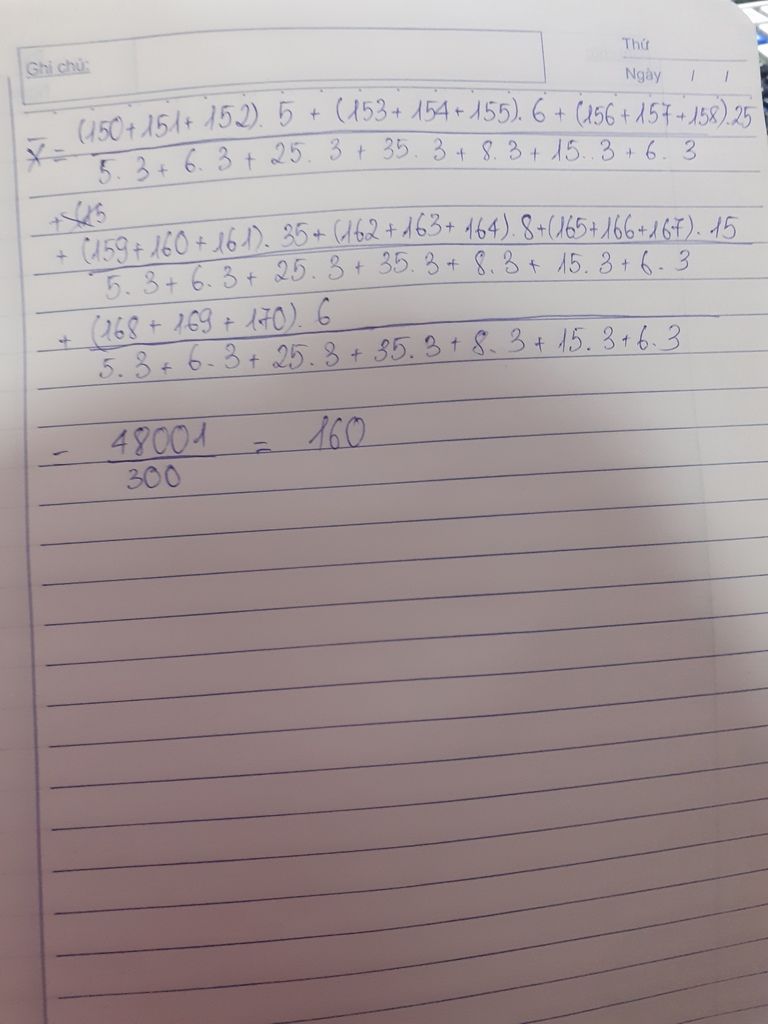 Ghi chú:
Thứ
Ngày / /
x̄ = (150+151+152). 5 + (153+154+155). 6 + (156+157+158).25
5. 3 + 6. 3 + 25. 3 + 35. 3 + 8. 3 + 15. . 3 + 6. 3
+ (15
+ (159+160+161). 35 + (162+163+164). 8 + (165+166+167). 15
5. 3 + 6. 3 + 25. 3 + 35. 3 + 8. 3 + 15. 3 + 6. 3
+ (168 + 169 + 170). 6
5. 3 + 6. 3 + 25. 3 + 35. 3 + 8. 3 + 15. 3 + 6. 3
= 48001 = 160
300